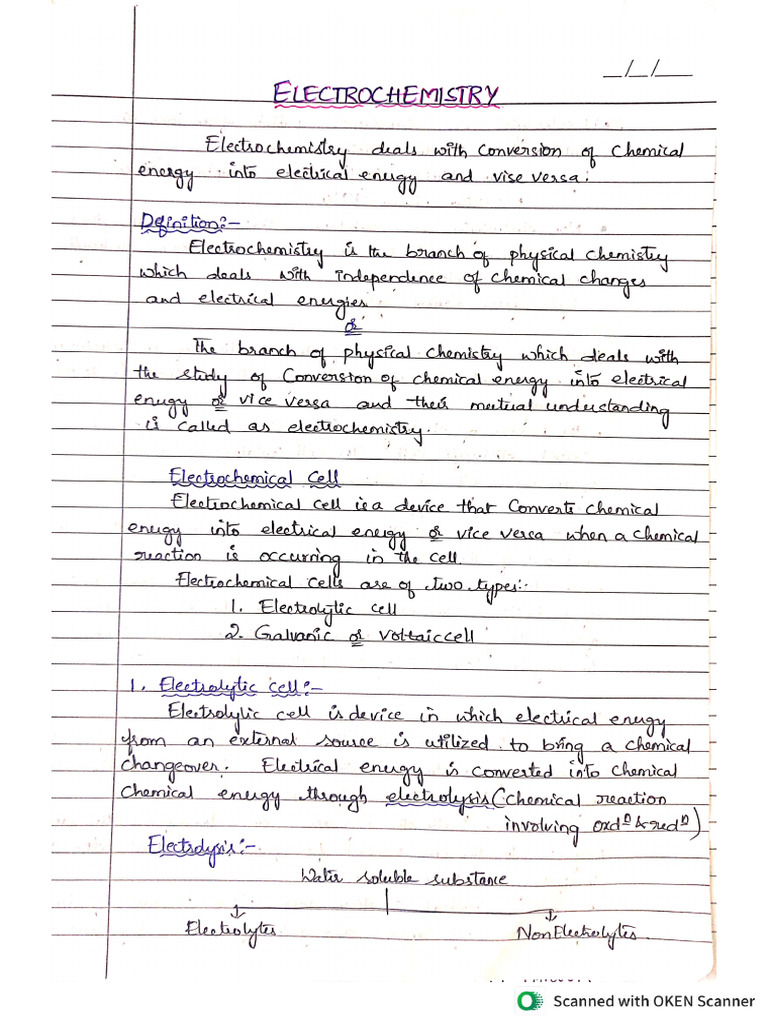 _/_/__
ELECTROCHEMISTRY
Electrochemistry deals with Conversion of Chemical
energy into electrical energy and vise versa.
Definition:-
Electrochemistry is the branch of physical chemistry
which deals with independence of chemical changes
and electrical energies.
or
The branch of physical chemistry which deals with
the study of Conversion of chemical energy into electrical
enugy or vice versa and their mutual understanding
is called as electrochemistry.
Electrochemical Cell
Electrochemical cell is a device that Converts chemical
enugy into electrical energy or vice versa when a chemical
reaction is occurring in the cell.
Electrochemical Cells are of two types:-
1. Electrolytic cell
2. Galvanic or Voltaic cell
1. Electrolytic cell:-
Electrolytic cell is device in which electrical enugy
from an external source is utilized to bring a chemical
changeover. Electrical energy is converted into chemical
Chemical energy through electrolysis (chemical reaction
involving oxdⁿ & redⁿ)
Electrolysis:-
Water soluble substance
Electrolytes
Non Electrolytes
Scanned with OKEN Scanner